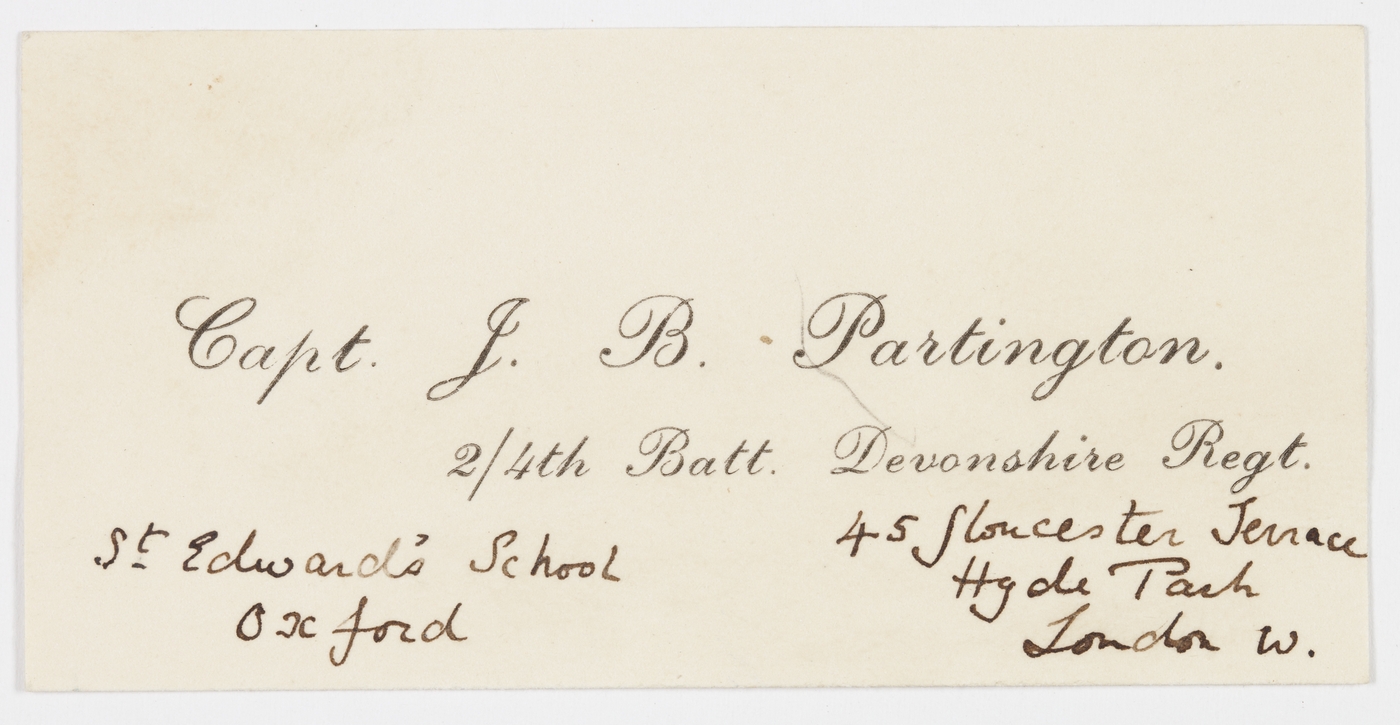 Capt. J. B. Partington.
2/4th Batt. Devonshire Regt.
St Edward's School
Oxford
45 Gloucester Terrace
Hyde Park
London W.